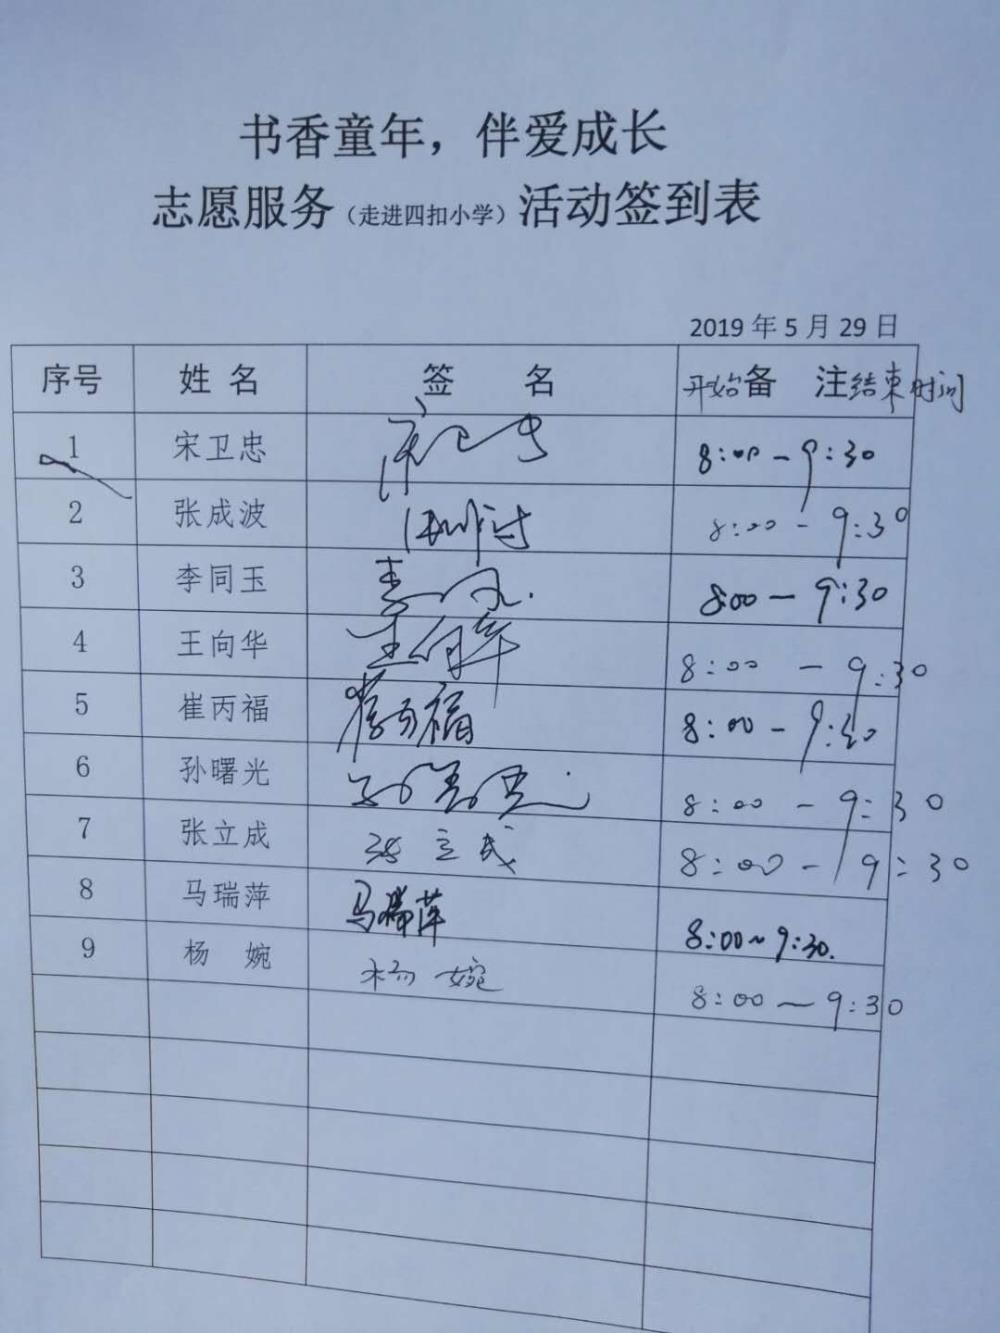 书香童年，伴爱成长
志愿服务（走进四扣小学）活动签到表
2019年5月29日
序号 姓 名 签 名 开始备 注结束时间
1 宋卫忠 8:00-9:30
2 张成波 8:00-9:30
3 李同玉 8:00-9:30
4 王向华 王向华 8:00-9:30
5 崔丙福 崔丙福 8:00-9:30
6 孙曙光 8:00-9:30
7 张立成 张立成 8:00-9:30
8 马瑞萍 马瑞萍 8:00~9:30.
9 杨 婉 杨婉 8:00-9:30